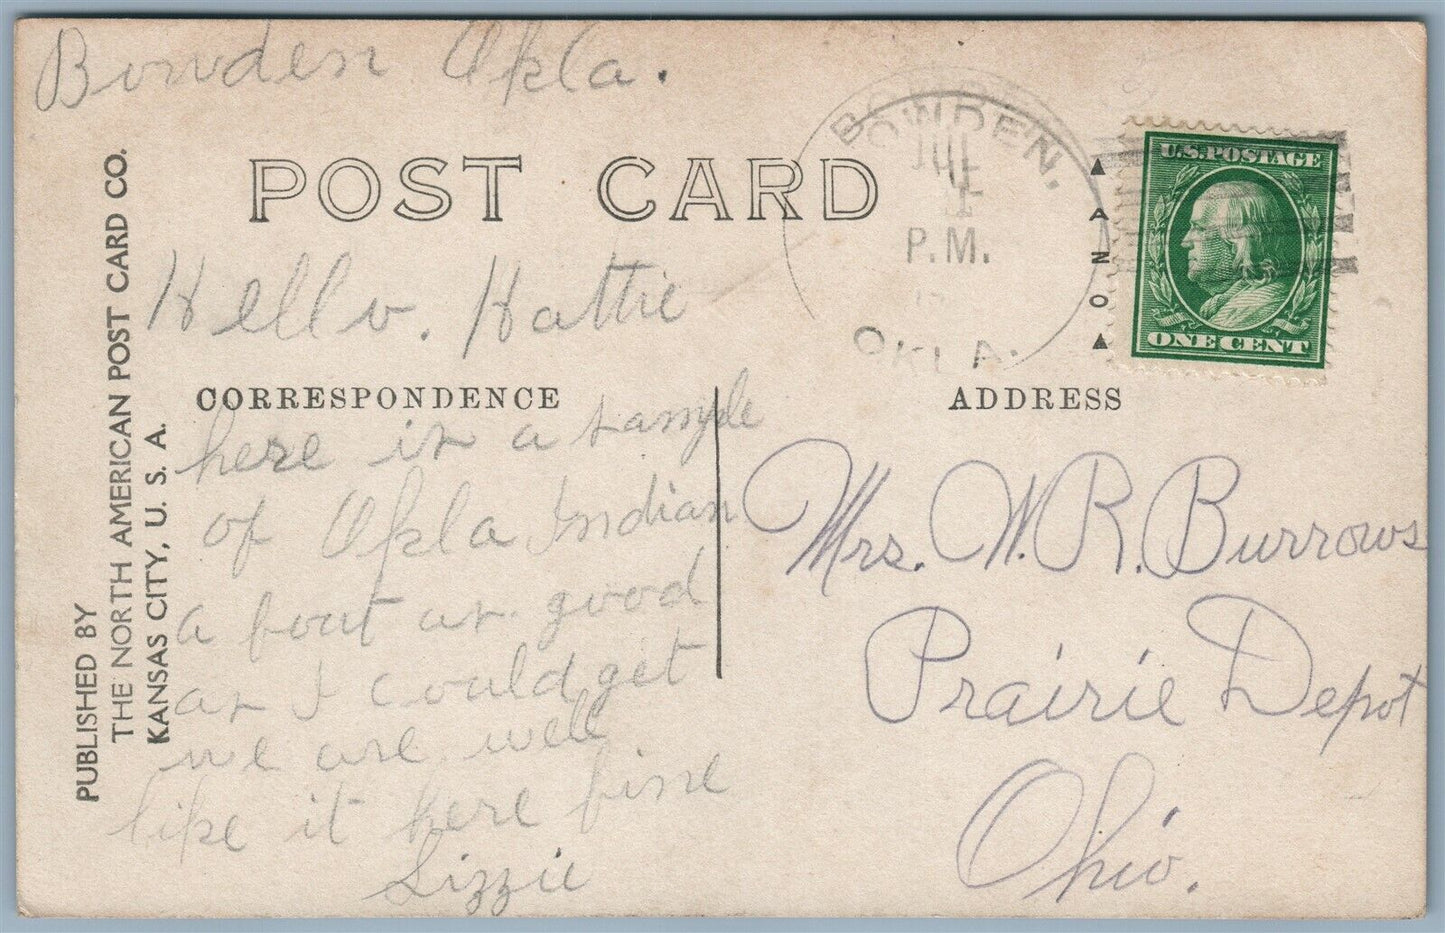 Bowden Okla.
BOWDEN.
JUL
1
P.M.
OKLA.
A
N
O
U.S. POSTAGE
ONE CENT
POST CARD
PUBLISHED BY
THE NORTH AMERICAN POST CARD CO.
KANSAS CITY, U. S. A.
Hello. Hattie
CORRESPONDENCE
here is a sample
of Okla Indian
a bout as good
as I could get
we are well
like it here fine
Lizzie
ADDRESS
Mrs. W. R. Burrows
Prairie Depot
Ohio.